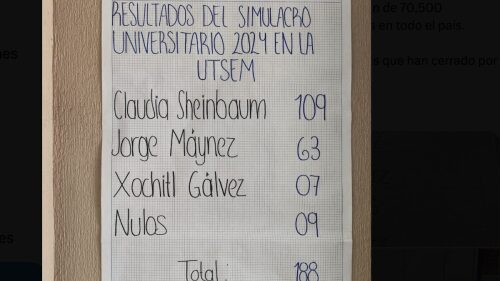 n de 70,500
s en todo el país.
s que han cerrado por
nes
es
RESULTADOS DEL SIMULACRO
UNIVERSITARIO 2024 EN LA
UTSEM
Claudia Sheinbaum 109
Jorge Máynez 63
Xochitl Gálvez 07
Nulos 09
Total: 188